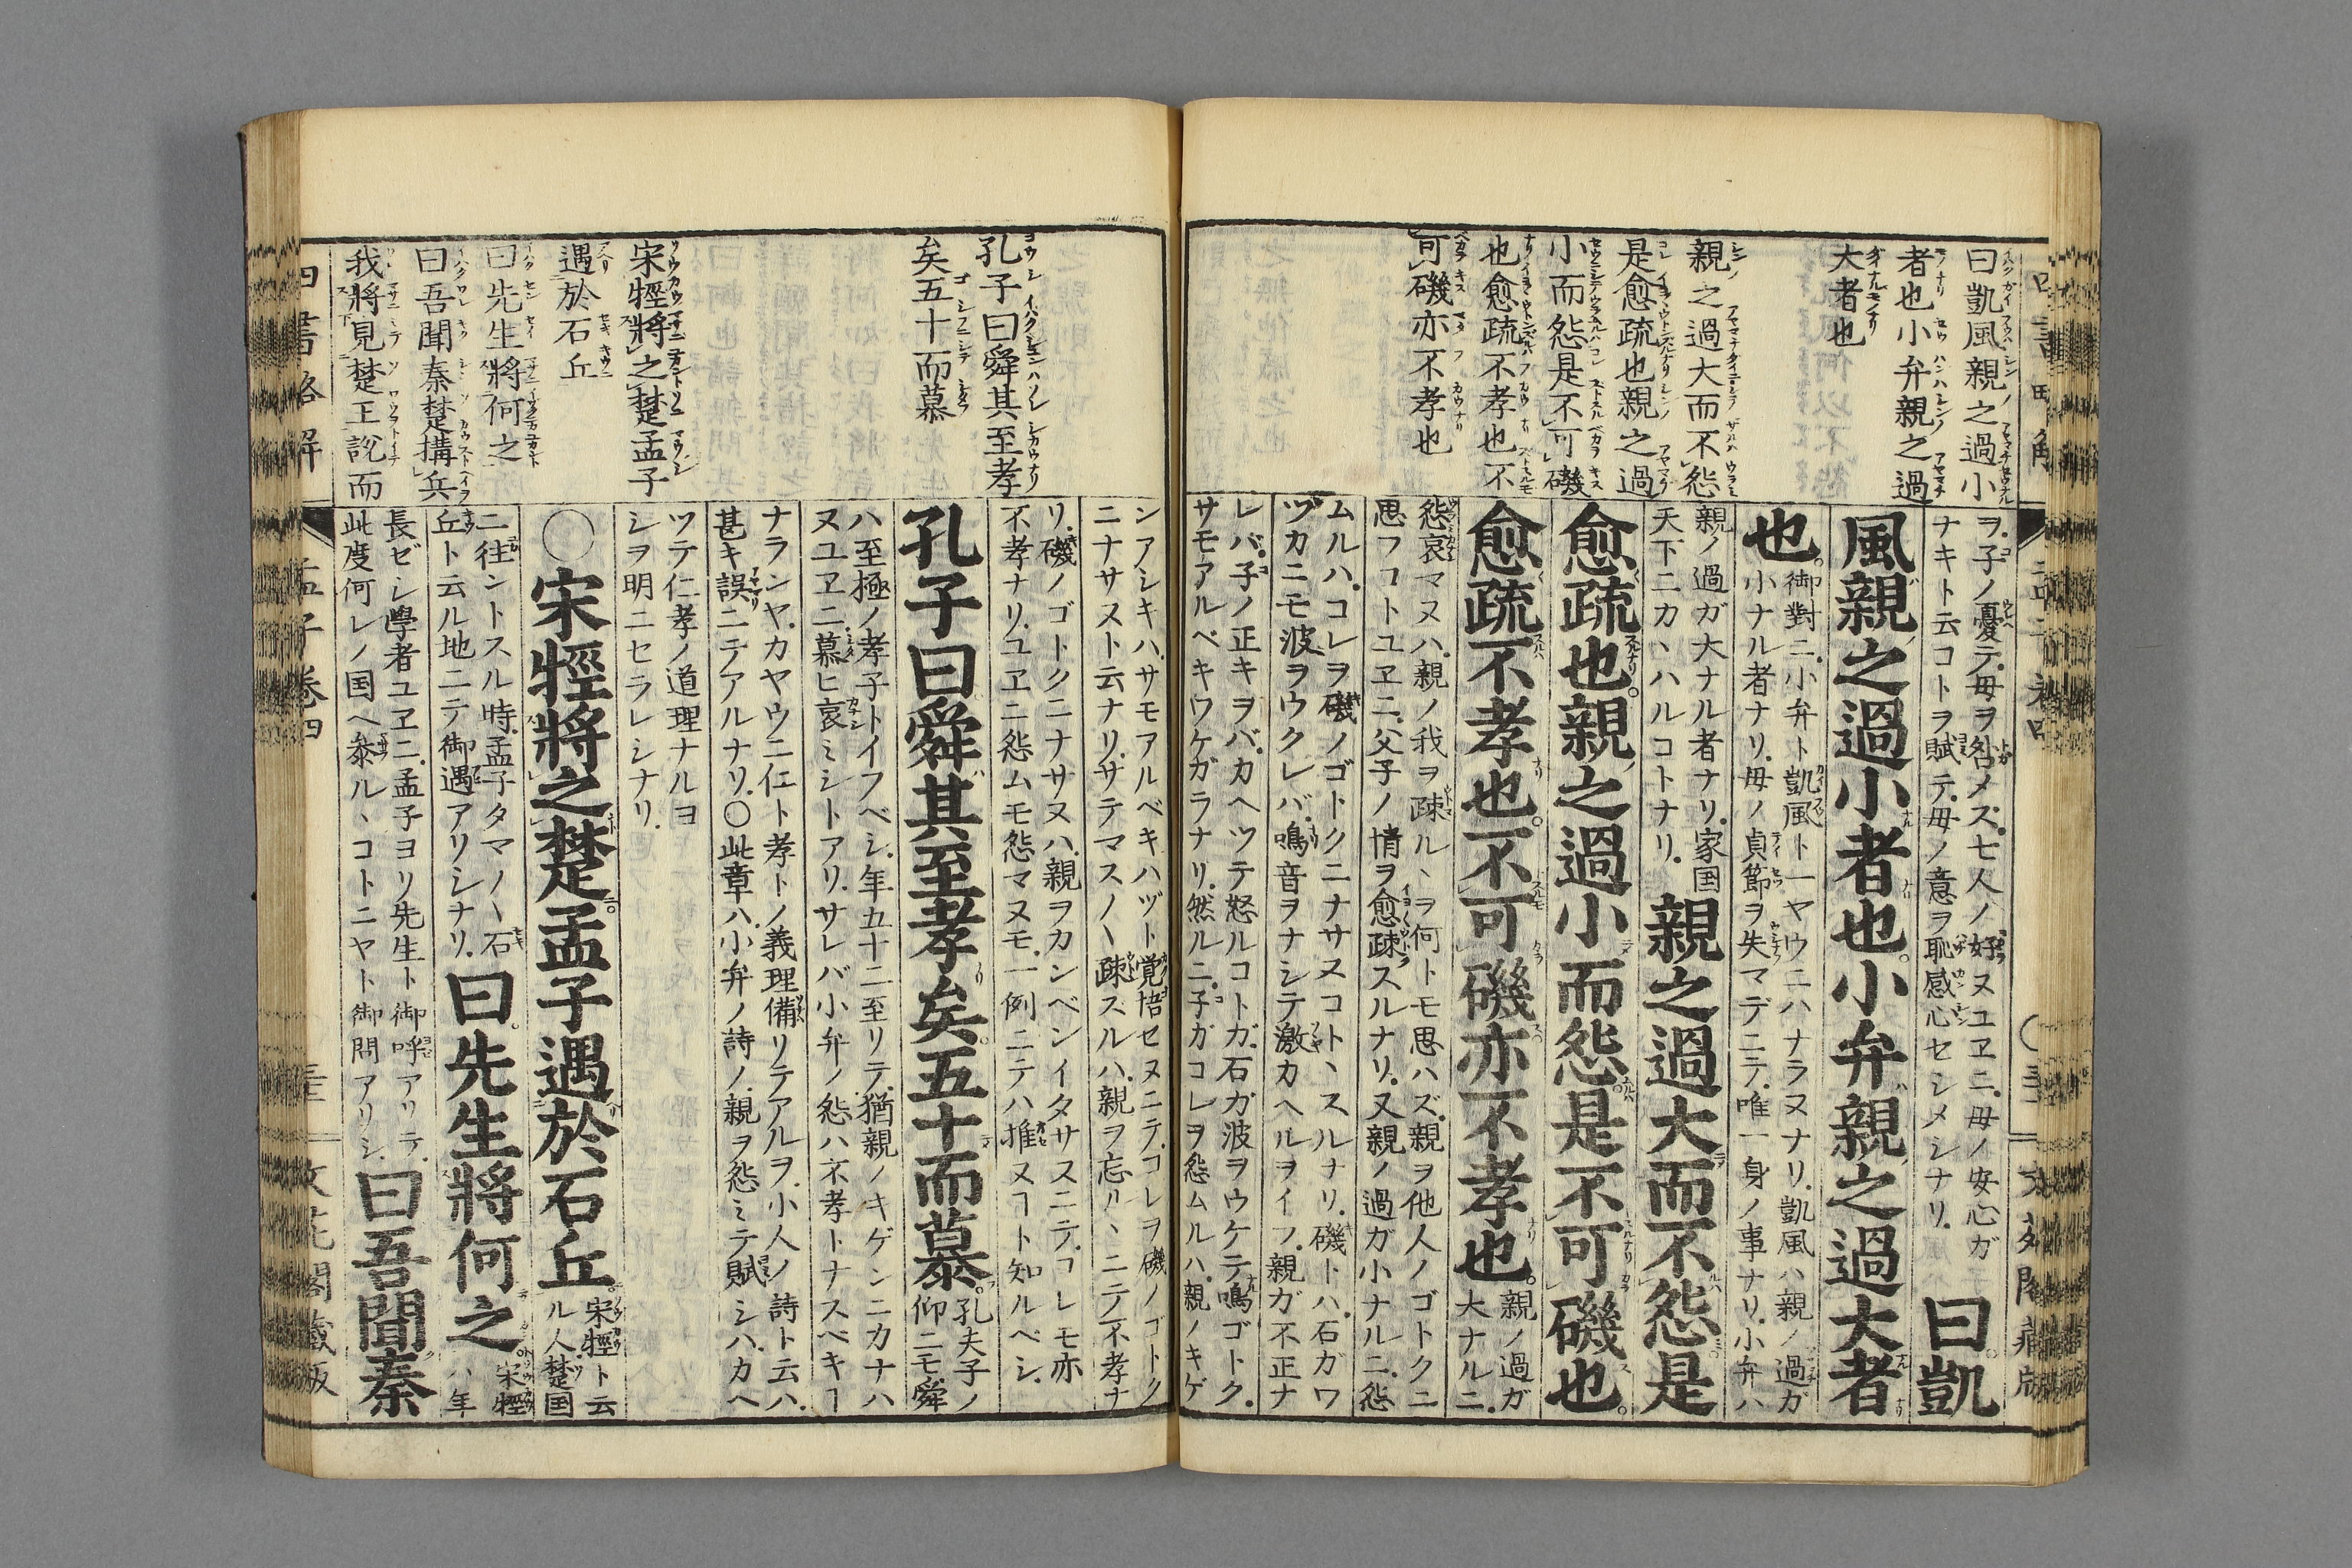 曰凱風親之過小
者也小弁親之過
大者也
親之過大而不怨
是愈疏也親之過
小而怨是不可磯
也愈疏不孝也不
可磯亦不孝也
ヲ子ノ憂テ母ヲ咎メズ七人ノ好ヌユヱニ母ノ安心ガ
ナキト云コトヲ賦テ母ノ意ヲ恥感心セシメシナリ
曰凱
風親之過小者也小弁親之過大者
也
御對ニ小弁ト凱風ト一ヤウニハナラヌナリ凱風ハ親ノ過ガ
小ナル者ナリ母ノ貞節ヲ失マデニテ唯一身ノ事ナリ小弁ハ
親ノ過ガ大ナル者ナリ家国
天下ニカヽハルコトナリ
親之過大而不怨是
愈疏也親之過小而怨是不可磯也
愈疏不孝也不可磯亦不孝也
親ノ過ガ
大ナルニ
怨哀マヌハ親ノ我ヲ疎ルヽヲ何トモ思ハズ親ヲ他人ノゴトクニ
思フコトユヱニ父子ノ情ヲ愈疎スルナリ又親ノ過ガ小ナルニ怨
ムルハコレヲ磯ノゴトクニナサヌコトヽスルナリ磯トハ石ガワ
ヅカニモ波ヲウクレバ鳴音ヲナシテ激カヘルヲイフ親ガ不正ナ
レバ子ノ正キヲバカヘツテ怒ルコトガ石ガ波ヲウケテ鳴ゴトク
サモアルベキワケガラナリ然ルニ子ガコレヲ怨ムルハ親ノキゲ
孔子曰舜其至孝
矣五十而慕
宋牼將之楚孟子
遇於石丘
曰先生將何之
曰吾聞秦楚搆兵
我將見楚王說而
ンアシキハサモアルベキハヅト覚悟セヌニテコレヲ磯ノゴトク
ニナサスト云ナリサテマスノ\疎スルハ親ヲ忘ルヽニテ不孝ナ
リ磯ノゴトクニナサヌハ親ヲカンベンイタサスニテコレモ亦
不孝ナリユヱニ怨ムモ怨マヌモ一例ニテハ推ヌヿト知ルベシ
孔子曰舜其至孝矣五十而慕
孔夫子ノ
仰ニモ舜
ハ至極ノ孝子トイフベシ年五十ニ至リテ猶親ノキゲンニカナハ
ヌユヱニ慕ヒ哀ミシトアリサレバ小弁ノ怨ハ不孝トナスベキヿ
ナランヤカヤウニ仁ト孝トノ義理備リテアルヲ小人ノ詩ト云ハ
甚キ誤ニテアルナリ〇此章ハ小弁ノ詩ノ親ヲ怨ミテ賦シハカヘ
ツテ仁孝ノ道理ナルヨ
シヲ明ニセラレシナリ
〇宋牼將之楚孟子遇於石丘
宋牼ト云
ル人楚国
ニ往ントスル時孟子タマノ\石
丘ト云ル地ニテ御遇アリシナリ
曰先生將何之
宋牼
ハ年
長ゼシ學者ユヱニ孟子ヨリ先生ト御呼アリテ
此度何レノ国ヘ參ルヽコトニヤト御問アリシ
曰吾聞秦
四書略解
孟子卷四
文花閣藏版